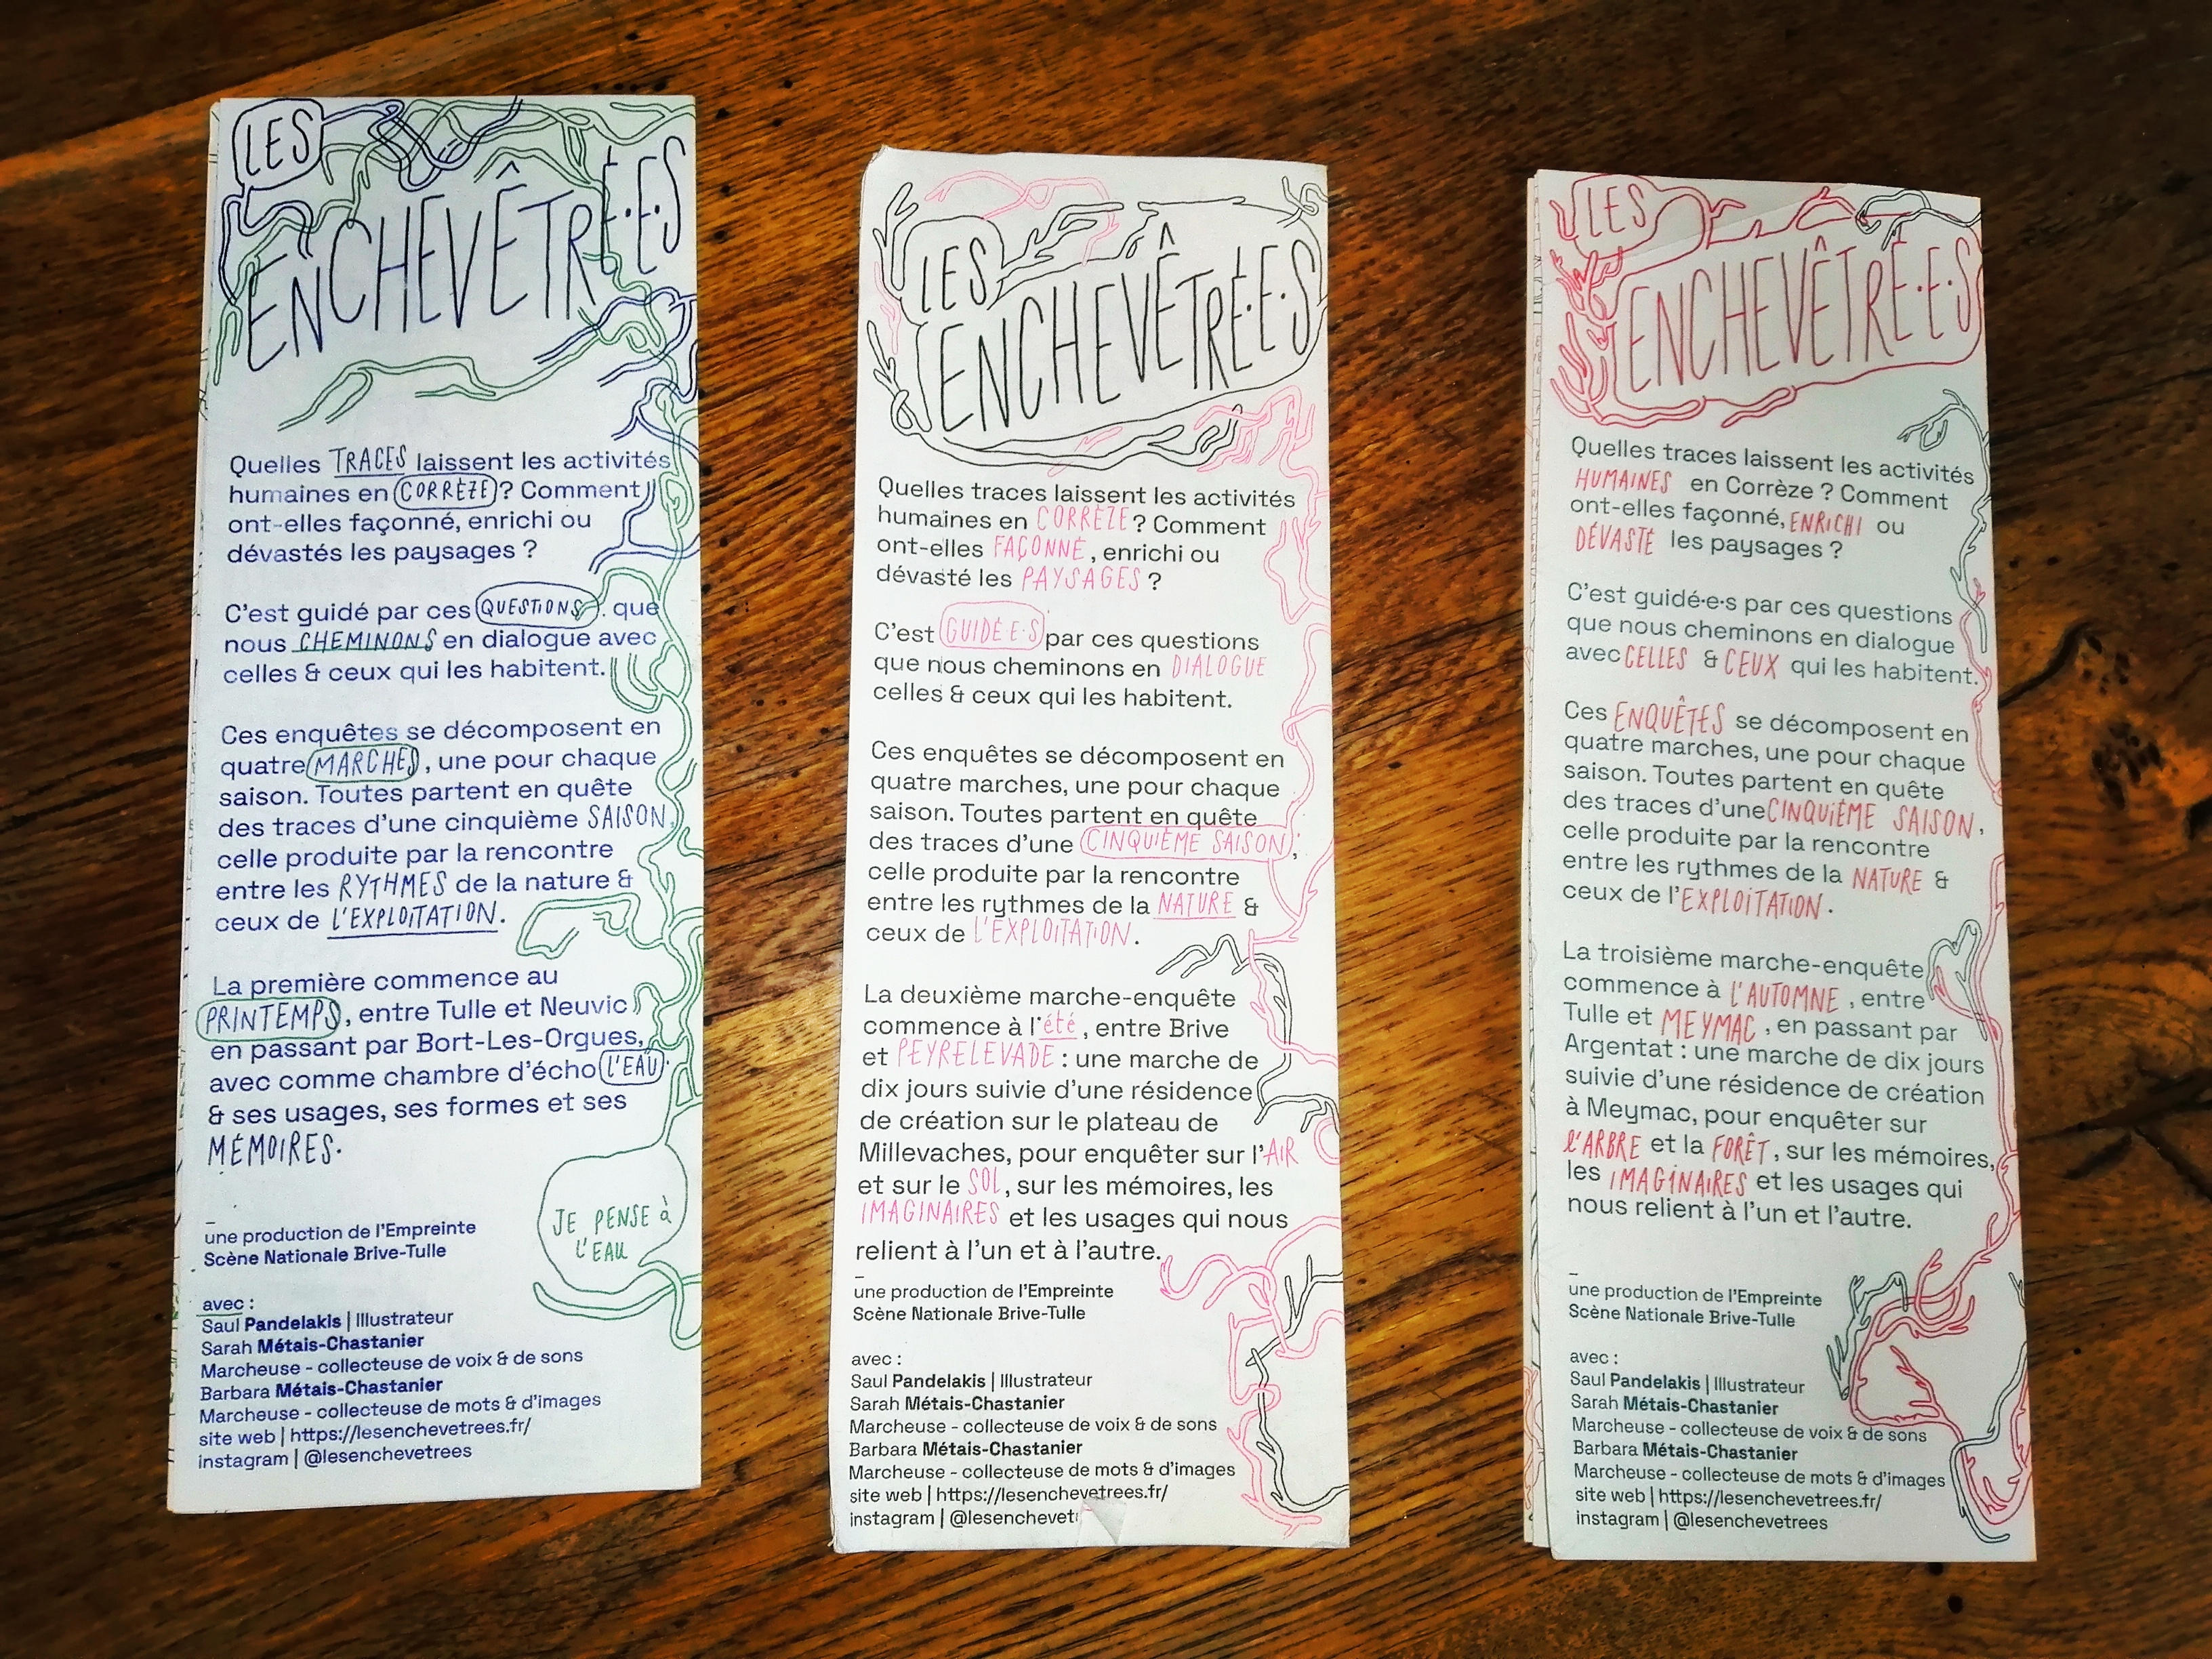 LES
ENCHEVÊTRÉ·E·S
Quelles TRACES laissent les activités
humaines en CORRÈZE ? Comment
ont-elles façonné, enrichi ou
dévastés les paysages ?
C'est guidé par ces QUESTIONS que
nous CHEMINONS en dialogue avec
celles & ceux qui les habitent.
Ces enquêtes se décomposent en
quatre MARCHES, une pour chaque
saison. Toutes partent en quête
des traces d'une cinquième SAISON,
celle produite par la rencontre
entre les RYTHMES de la nature &
ceux de L'EXPLOITATION.
La première commence au
PRINTEMPS, entre Tulle et Neuvic
en passant par Bort-Les-Orgues,
avec comme chambre d'écho L'EAU
& ses usages, ses formes et ses
MÉMOIRES.
JE PENSE à
L'EAU
–
une production de l'Empreinte
Scène Nationale Brive-Tulle
avec :
Saul Pandelakis | Illustrateur
Sarah Métais-Chastanier
Marcheuse - collecteuse de voix & de sons
Barbara Métais-Chastanier
Marcheuse - collecteuse de mots & d'images
site web | https://lesenchevetrees.fr/
instagram | @lesenchevetrees
LES
ENCHEVÊTRÉ·E·S
Quelles traces laissent les activités
humaines en CORRÈZE ? Comment
ont-elles FAÇONNÉ, enrichi ou
dévasté les PAYSAGES ?
C'est GUIDÉ·E·S par ces questions
que nous cheminons en DIALOGUE
celles & ceux qui les habitent.
Ces enquêtes se décomposent en
quatre marches, une pour chaque
saison. Toutes partent en quête
des traces d'une CINQUIÈME SAISON,
celle produite par la rencontre
entre les rythmes de la NATURE &
ceux de L'EXPLOITATION.
La deuxième marche-enquête
commence à l'été, entre Brive
et PEYRELEVADE : une marche de
dix jours suivie d'une résidence
de création sur le plateau de
Millevaches, pour enquêter sur l'AIR
et sur le SOL, sur les mémoires, les
IMAGINAIRES et les usages qui nous
relient à l'un et à l'autre.
–
une production de l'Empreinte
Scène Nationale Brive-Tulle
avec :
Saul Pandelakis | Illustrateur
Sarah Métais-Chastanier
Marcheuse - collecteuse de voix & de sons
Barbara Métais-Chastanier
Marcheuse - collecteuse de mots & d'images
site web | https://lesenchevetrees.fr/
instagram | @lesenchevet
LES
ENCHEVÊTRÉ·E·S
Quelles traces laissent les activités
HUMAINES en Corrèze ? Comment
ont-elles façonné, ENRICHI ou
DÉVASTÉ les paysages ?
C'est guidé·e·s par ces questions
que nous cheminons en dialogue
avec CELLES & CEUX qui les habitent.
Ces ENQUÊTES se décomposent en
quatre marches, une pour chaque
saison. Toutes partent en quête
des traces d'une CINQUIÈME SAISON,
celle produite par la rencontre
entre les rythmes de la NATURE &
ceux de l'EXPLOITATION.
La troisième marche-enquête
commence à L'AUTOMNE, entre
Tulle et MEYMAC, en passant par
Argentat : une marche de dix jours
suivie d'une résidence de création
à Meymac, pour enquêter sur
l'ARBRE et la FORÊT, sur les mémoires,
les IMAGINAIRES et les usages qui
nous relient à l'un et l'autre.
–
une production de l'Empreinte
Scène Nationale Brive-Tulle
avec :
Saul Pandelakis | Illustrateur
Sarah Métais-Chastanier
Marcheuse - collecteuse de voix & de sons
Barbara Métais-Chastanier
Marcheuse - collecteuse de mots & d'images
site web | https://lesenchevetrees.fr/
instagram | @lesenchevetrees